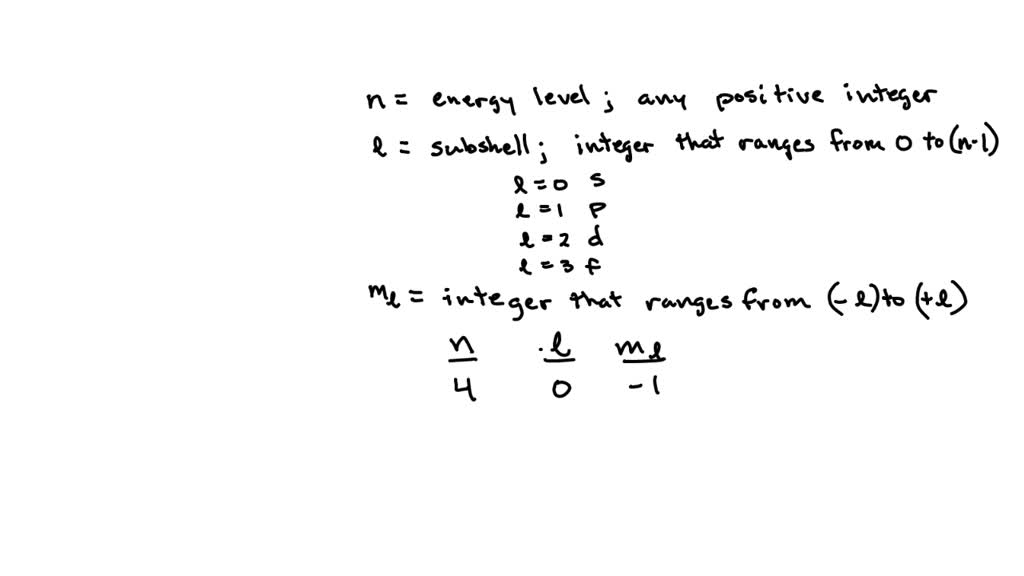 n = energy level; any positive integer
l = subshell; integer that ranges from 0 to (n-1)
l = 0 s
l = 1 p
l = 2 d
l = 3 f
ml = integer that ranges from (-l) to (+l)
n l ml
4 0 -1